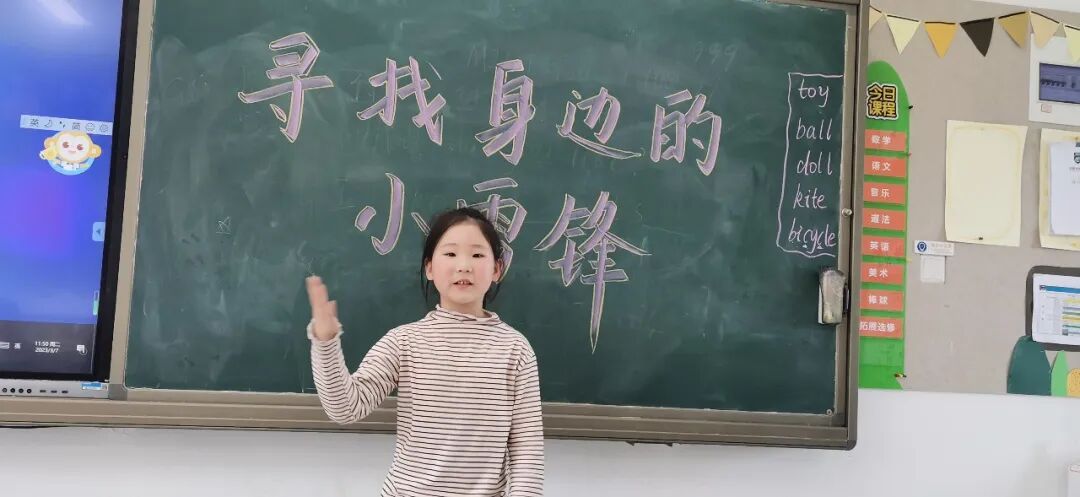 寻找身边的
小雷锋
toy
ball
doll
kite
bicycle
今日
课程
数学
语文
音乐
道法
英语
美术
棒球
拓展选修
英
简
11:50 周二
2023/3/7
英